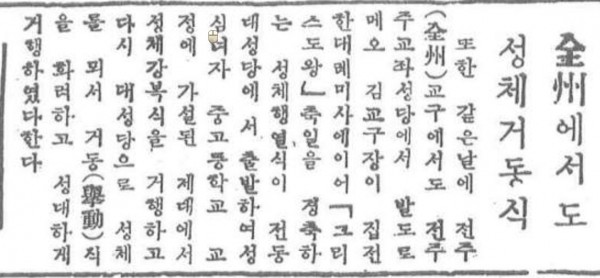 全州에서도
성체거동식
또한 같은날에 전주
(全州)교구에서도 전주
주교좌성당에서 발도로
메오 김교구장이 집전
한대례미사에이어 「크리
스도왕」축일을 경축하
는 성체행열식이 전동
대성당에서 출발하여성
심여자 중고등학교 교
정에 가설된 제대에서
성체강복식을 거행하고
다시 대성당으로 성체
를 뫼서 거동(擧動)식
을 화려하고 성대하게
거행하였다한다